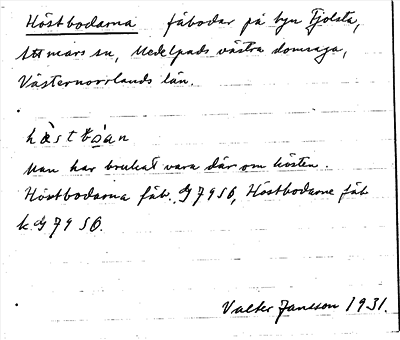 Höstbodarna fäbodar på byn Fjolsta,
Attmars sn, Medelpads västra domsaga,
Västernorrlands län.
hæstbóan
Man har brukat vara där om hösten.
Höstbodarna fäb. GJ 79 SO, Höstbodarne fäb
k. GJ 79 SO.
Valter Jansson 1931.